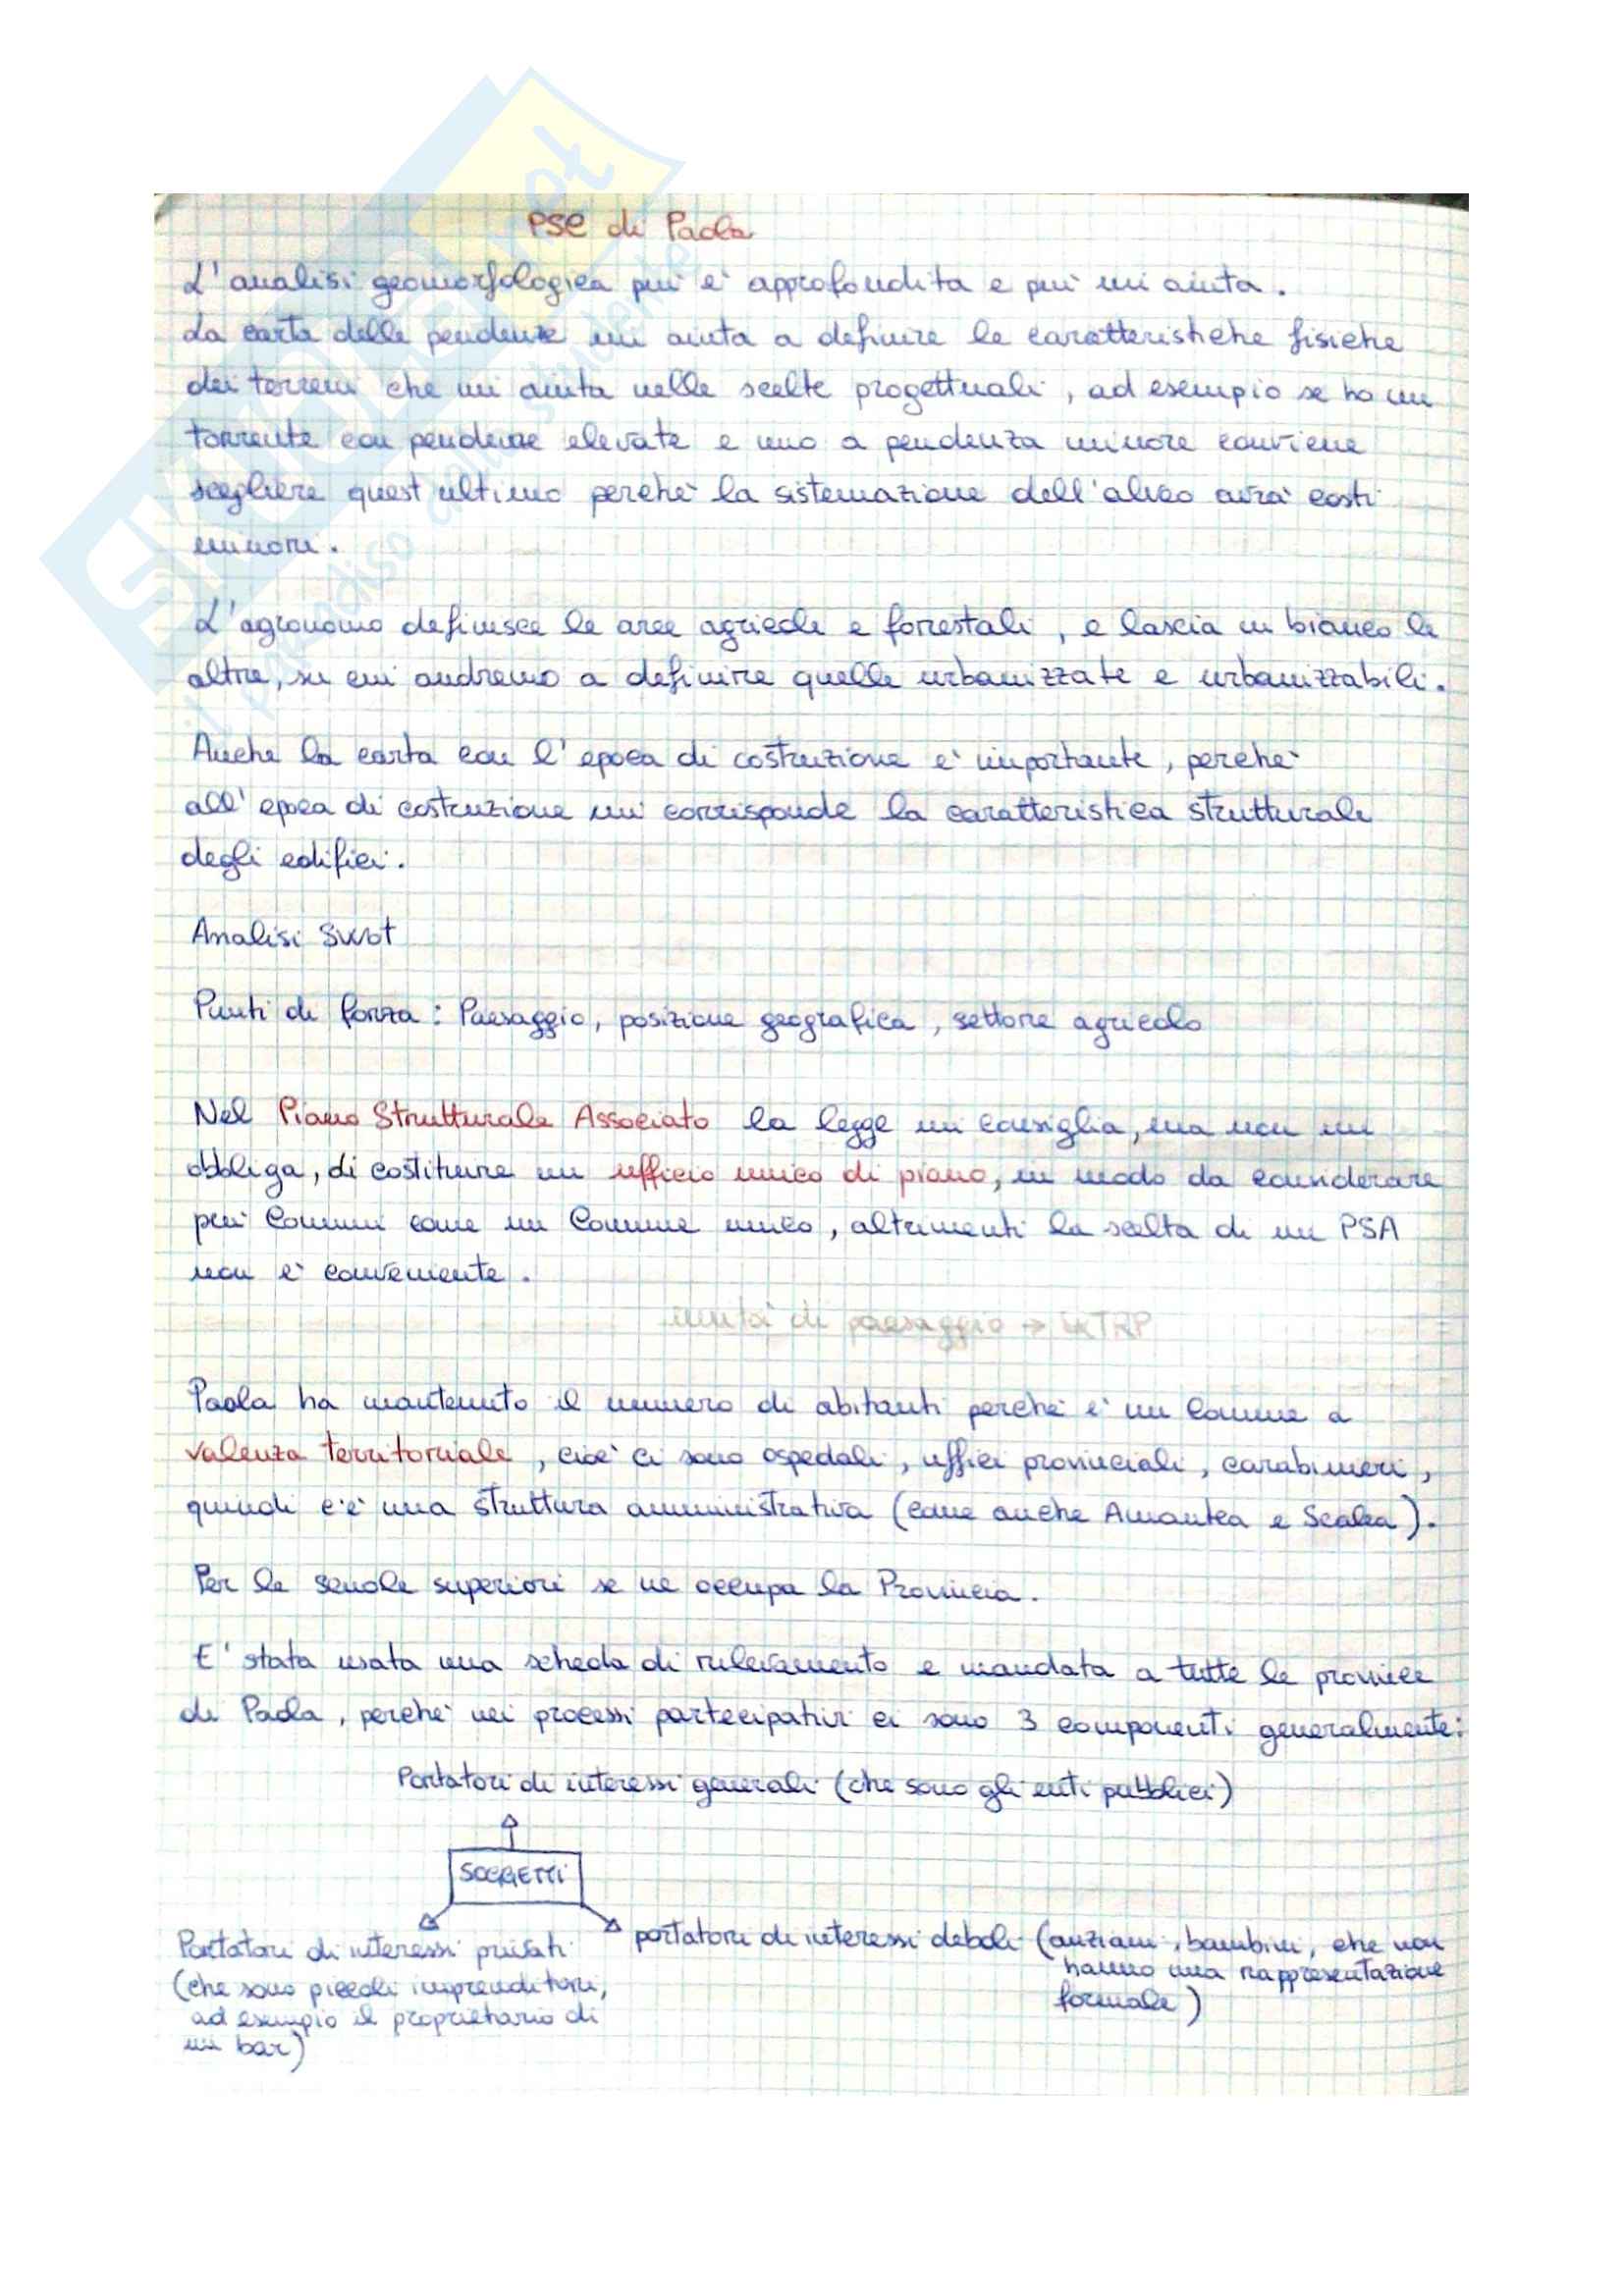 PSC di Paola
L'analisi geomorfologica più è approfondita e più mi aiuta.
La carta delle pendenze mi aiuta a definire le caratteristiche fisiche
dei terreni che mi aiuta nelle scelte progettuali, ad esempio se ho un
torrente con pendenze elevate e uno a pendenza minore conviene
scegliere quest'ultimo perchè la sistemazione dell'alveo avrà costi
minori.
L'agronomo definisce le aree agricole e forrestali, e lascia in bianco le
altre, su cui andremo a definire quelle urbanizzate e urbanizzabili.
Anche la carta con l'epoca di costruzione è importante, perchè
all'epoca di costruzione mi corrisponde la caratteristica strutturale
degli edifici.
Analisi Swot
Punti di forza: Paesaggio, posizione geografica, settore agricolo
Nel Piano Strutturale Associato la legge mi consiglia, ma non mi
obbliga, di costituire un ufficio unico di piano, in modo da considerare
più Comuni come un Comune unico, altrimenti la scelta di un PSA
non è conveniente.
unità di paesaggio →
Paola ha mantenuto il numero di abitanti perchè è un Comune a
valenza territoriale, cioè ci sono ospedali, uffici provinciali, carabinieri,
quindi c'è una struttura amministrativa (come anche Amantea e Scalea).
Per le scuole superiori se ne occupa la Provincia.
E' stata usata una scheda di rilevamento e mandata a tutte le province
di Paola, perchè nei processi partecipativi ci sono 3 componenti generalmente:
Portatori di interessi generali (che sono gli enti pubblici)
SOGGETTI
Portatori di interessi privati
(che sono piccoli imprenditori,
ad esempio il proprietario di
un bar)
portatori di interessi deboli (anziani, bambini, che non
hanno una rappresentazione
formale)
SKUOLA.net
il paradiso dello studente